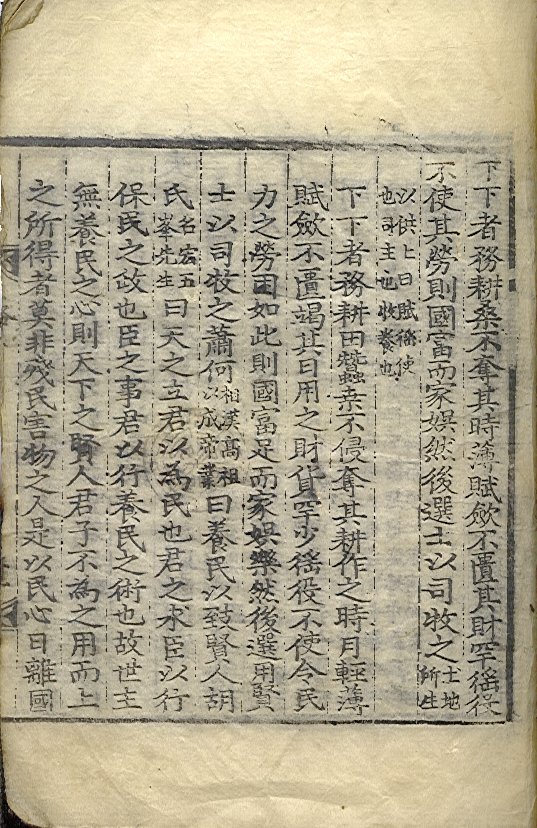 下下者務耕桑不奪其時薄賦斂不匱其財罕徭役
不使其勞則國富而家娛然後選士以司牧之土地所生
以供上曰賦徭使也司主也牧養也
下下者務耕田蠶桑不侵奪其耕作之時月輕薄
賦斂不匱竭其日用之財貨罕少徭役不使令民
力之勞困如此則國富足而家娛樂然後選用賢
士以司牧之蕭何相漢高祖以成帝業曰養民以致賢人胡
氏名宏五峯先生曰天之立君以為民也君之求臣以行
保民之政也臣之事君以行養民之術也故世主
無養民之心則天下之賢人君子不為之用而上
之所得者莫非殘民害物之人是以民心日離國